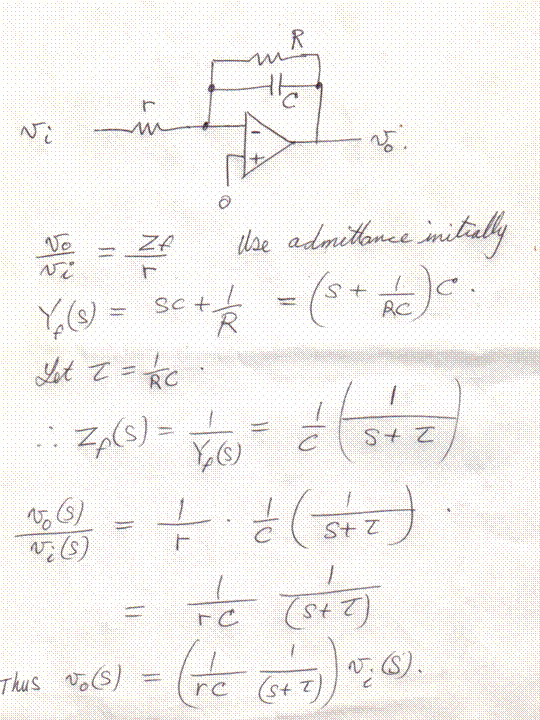 R
C
r
vi
-
+
vo.
0
vo/vi = Zf/r Use admittance initially
Yf(s) = sc + 1/R = (s + 1/RC)C.
Let τ = 1/RC.
∴ Zf(s) = 1/Yf(s) = 1/C (1/(s + τ))
vo(s)/vi(s) = 1/r · 1/C (1/(s + τ)).
= 1/rC 1/(s + τ)
Thus vo(s) = (1/rC 1/(s + τ)) vi(s).